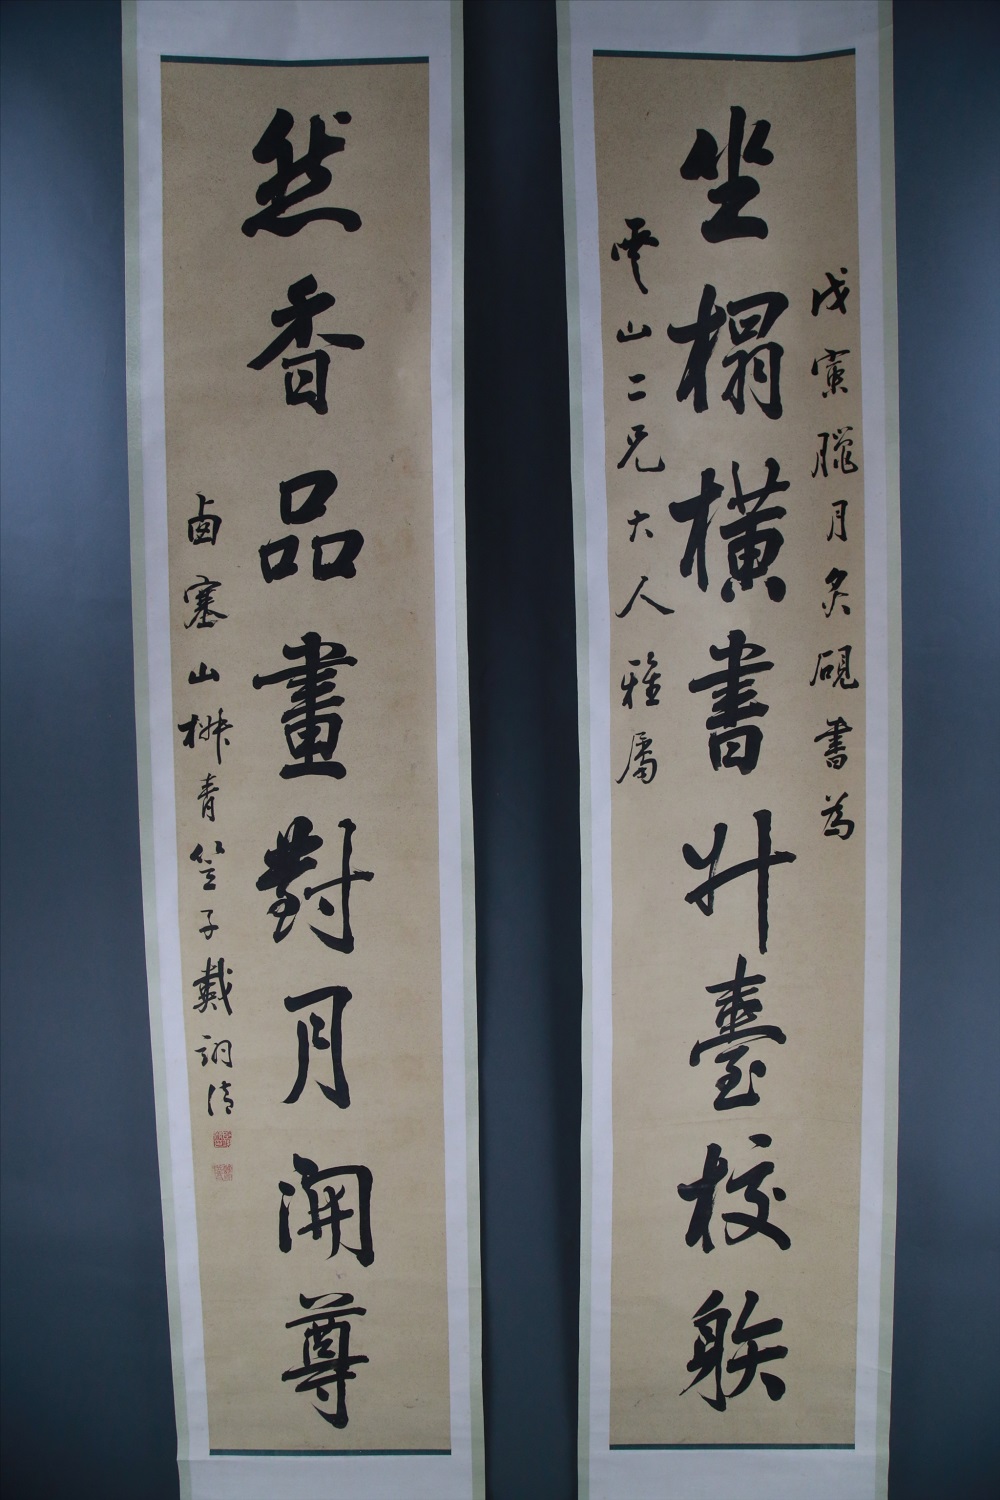 戊寅臘月炙硯書為
坐榻橫書升臺校䠶
雲山二兄大人雅屬
然香品畫對月開尊
鹵塞山櫯青笠子戴詡清